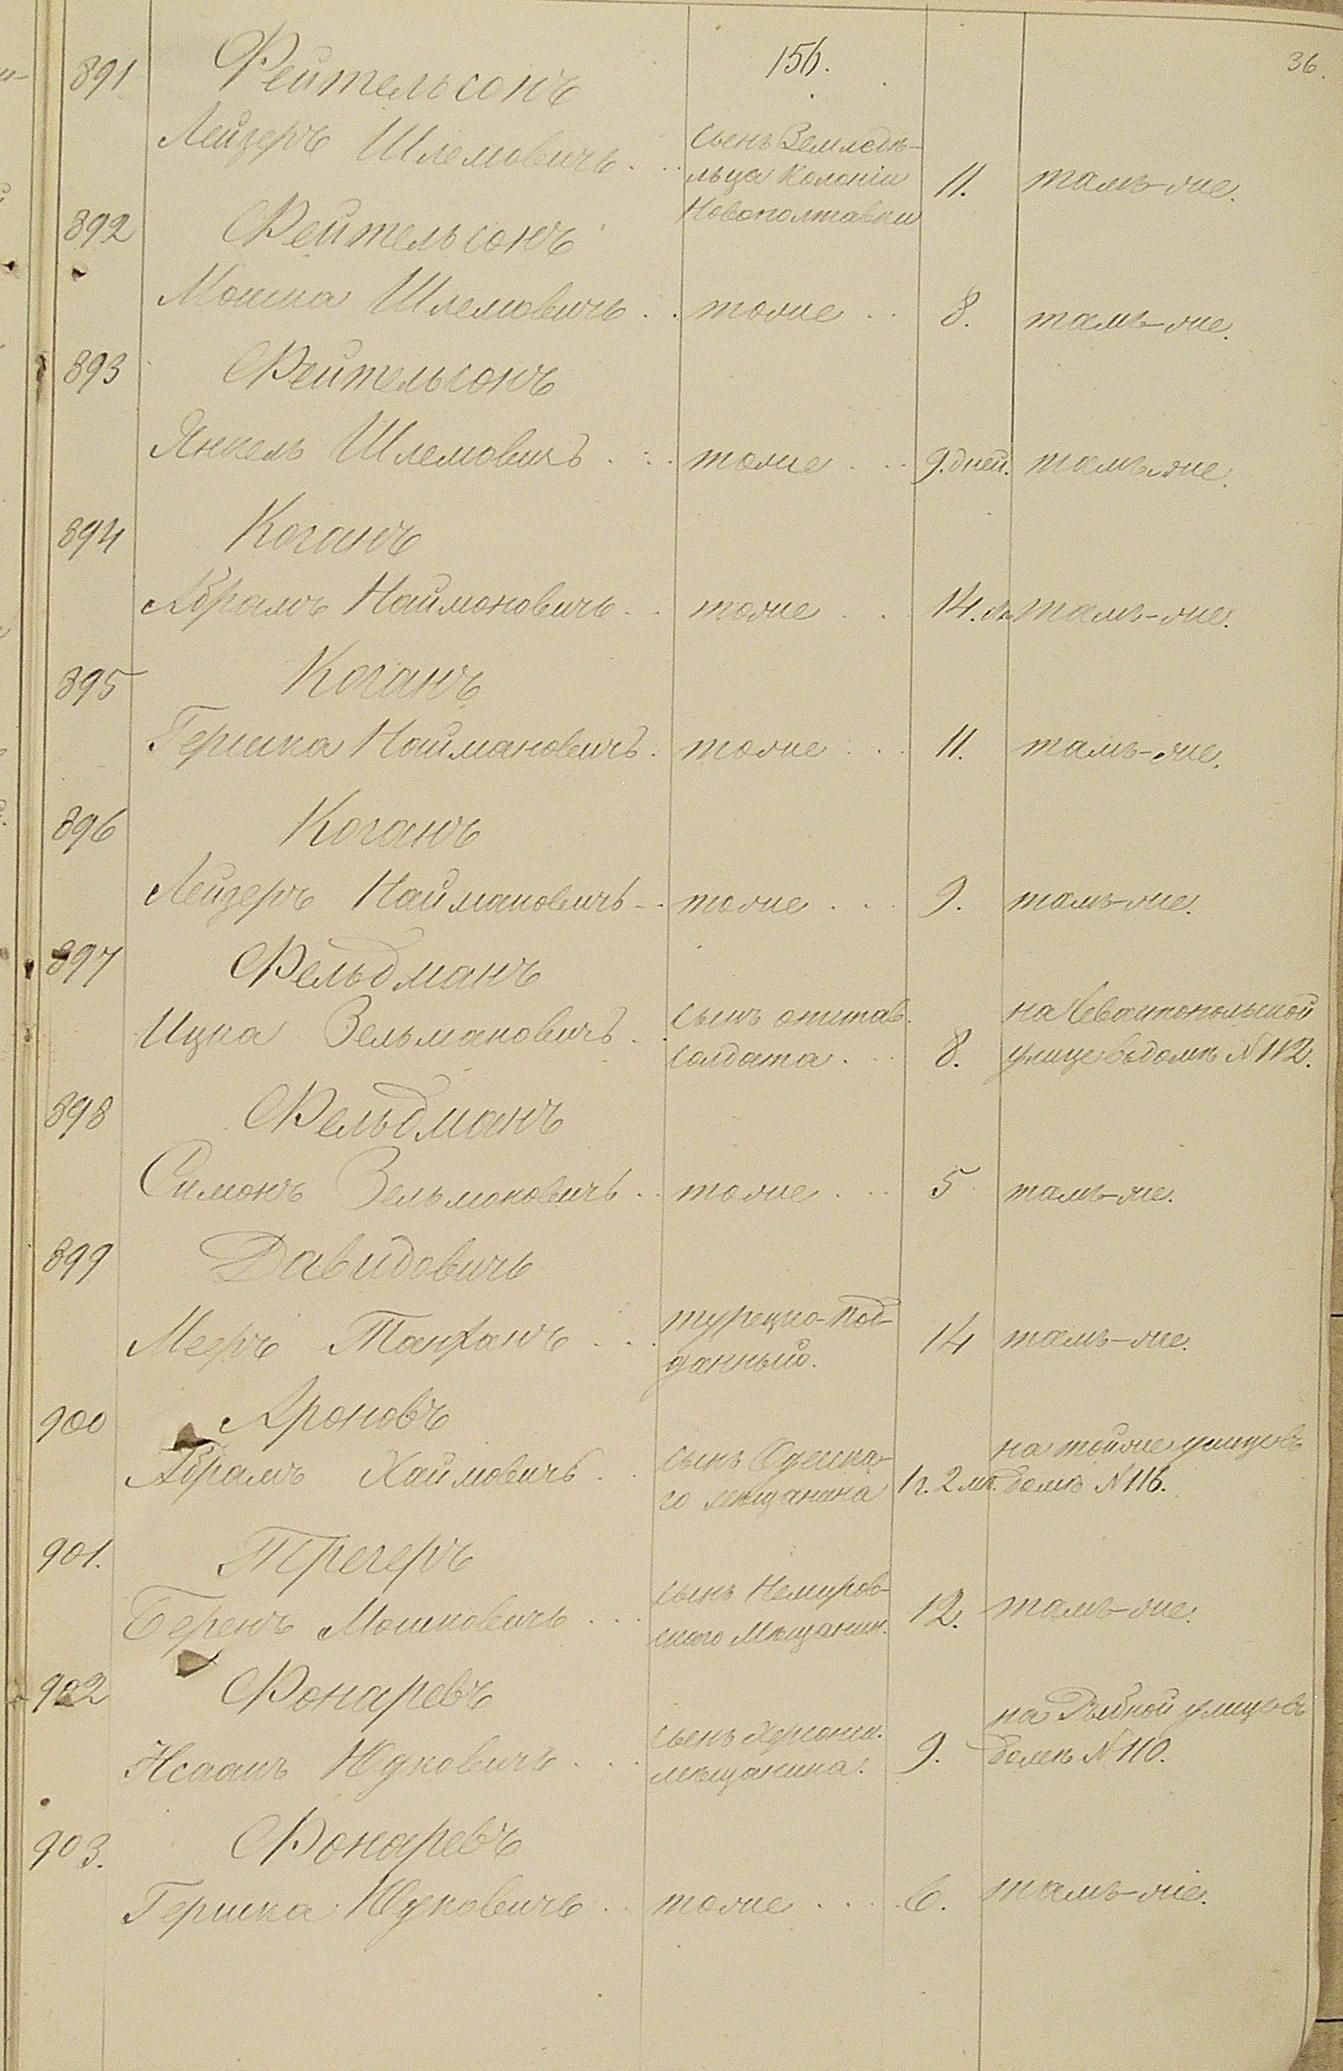 156.
36.
891 Фейтельсонъ
Лейзеръ Шлемовичъ . . сынъ Земледѣ-
льца Колоніи
Новополтавки 11. тамъ-же.
892 Фейтельсонъ
Мошка Шлемовичъ . . тоже . . 8. тамъ-же.
893 Фейтельсонъ
Янкель Шлемовичъ . . . тоже . . . 9. дней. тамъ-же.
894 Коганъ
Абрамъ Наймановичъ . . тоже . . . 14. л. тамъ-же.
895 Коганъ
Гершка Наймановичъ . тоже . . . 11. тамъ-же.
896 Коганъ
Лейзеръ Наймановичъ . . тоже . . . 9. тамъ-же.
897 Фельдманъ
Ицка Зельмановичъ . . сынъ отстав.
солдата . . . 8.
на Севастопольской
улице въ домѣ N 112.
898 Фельдманъ
Симонъ Зельмановичъ . . тоже . . . 5 тамъ-же.
899 Давидовичъ
Мееръ . . . турецко-под-
данный. 14 тамъ-же.
900 Ароновъ
Абрамъ Хаимовичъ . . сынъ Одесска-
го мѣщанина 1 г. 2 мѣ.
на той же улице въ
домѣ N 116.
901. Трегеръ
Беренъ Мошковичъ . . . сынъ Немиров-
скаго Мѣщанин. 12. тамъ-же.
902 Фонаревъ
Исаакъ Юдковичъ . . . сынъ Херсонск.
мѣщанина. 9.
на Рыбной улице въ
домѣ N 110.
903. Фонаревъ
Гершка Юдковичъ . . тоже . . . . 6. тамъ-же.